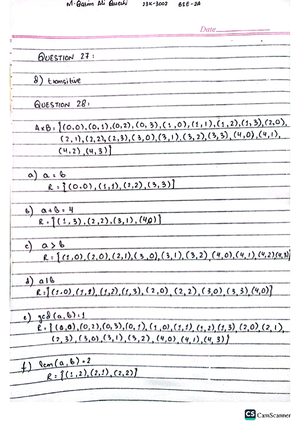 M. Qasim Ali Qureshi 23K-3007 BSE-2A
Date
QUESTION 27:
d) transitive
QUESTION 28:
A×B = {(0,0),(0,1),(0,2),(0,3),(1,0),(1,1),(1,2),(1,3),(2,0),
(2,1),(2,2),(2,3),(3,0),(3,1),(3,2),(3,3),(4,0),(4,1),
(4,2),(4,3)}
a) a = b
R = {(0,0),(1,1),(2,2),(3,3)}
b) a+b = 4
R = {(1,3),(2,2),(3,1),(4,0)}
c) a > b
R = {(1,0),(2,0),(2,1),(3,0),(3,1),(3,2),(4,0),(4,1),(4,2),(4,3)}
d) a|b
R = {(1,0),(1,1),(1,2),(1,3),(2,0),(2,2),(3,0),(3,3),(4,0)}
e) gcd(a,b)=1
(1,0),(1,1),(1,2),(1,3),(2,0),(2,1)
(2,3),(3,0),(3,1),(3,2),(4,0),(4,1),(4,3)}
f) lcm(a,b)=2
R = {(1,2),(2,1),(2,2)}
CS CamScanner